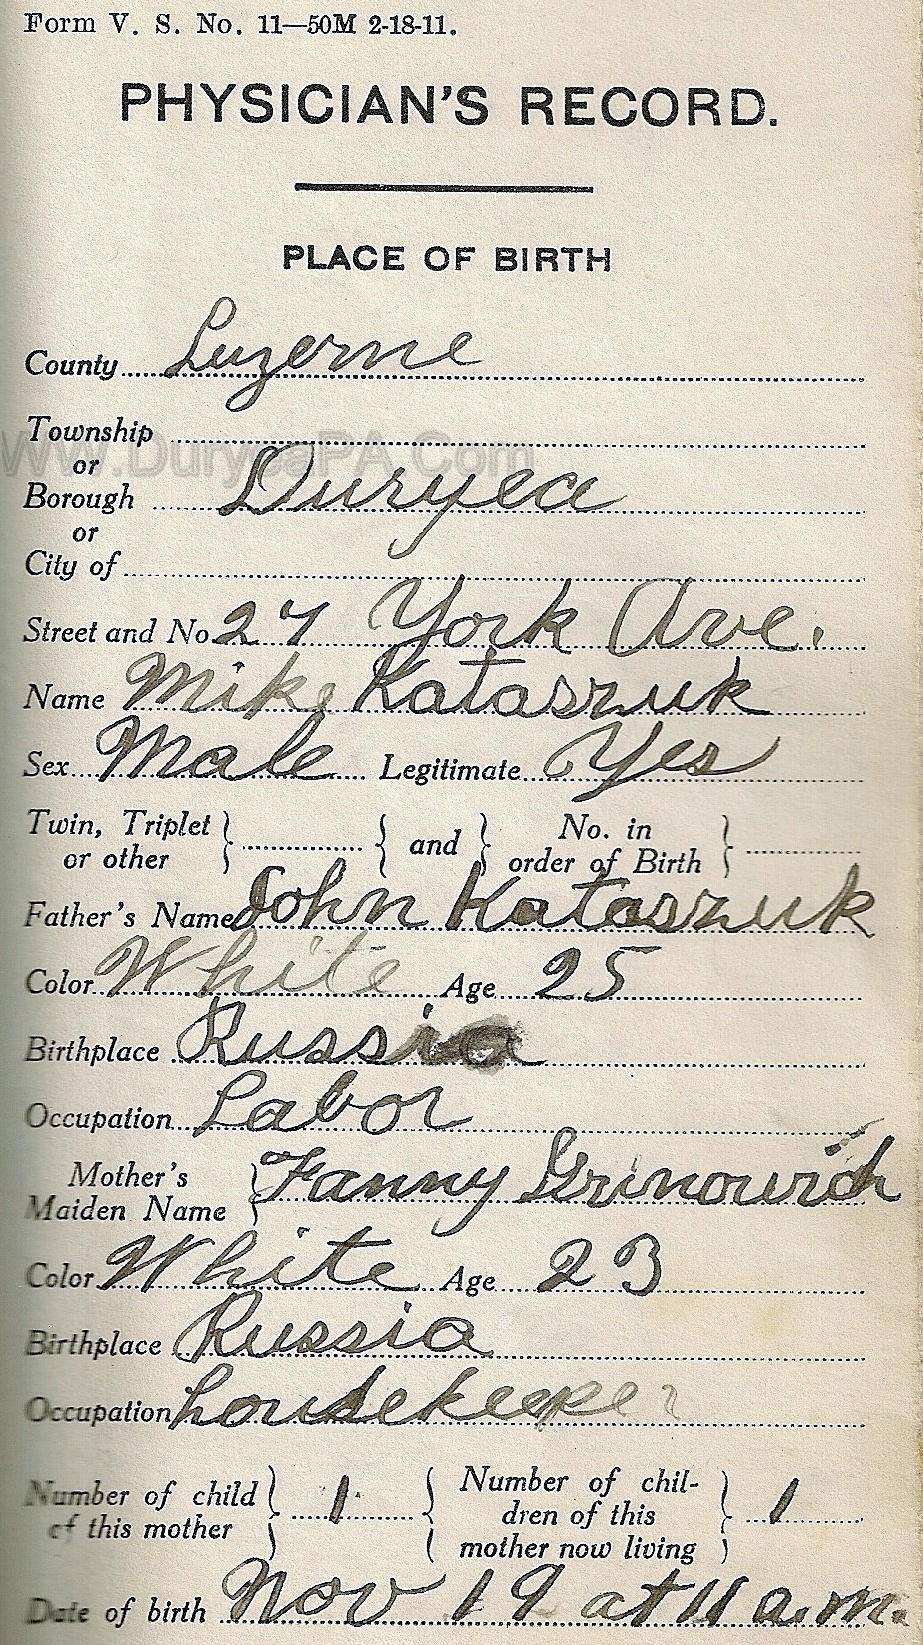 Form V. S. No. 11—50M 2-18-11.
PHYSICIAN'S RECORD.
PLACE OF BIRTH
County Luzerne
Township
www.DuryeaPA.Com
or
Borough Duryea
or
City of
Street and No 27 York Ave.
Name Mike Kataszuk
Sex Male Legitimate Yes
Twin, Triplet or other } { and } No. in order of Birth }
Father's Name John Kataszuk
Color White Age 25
Birthplace Russia
Occupation Labor
Mother's Maiden Name } Fanny Grinowich
Color White Age 23
Birthplace Russia
Occupation housekeeper
Number of child of this mother } 1 { Number of children of this mother now living } 1
Date of birth Nov 19 at 11 a.m.